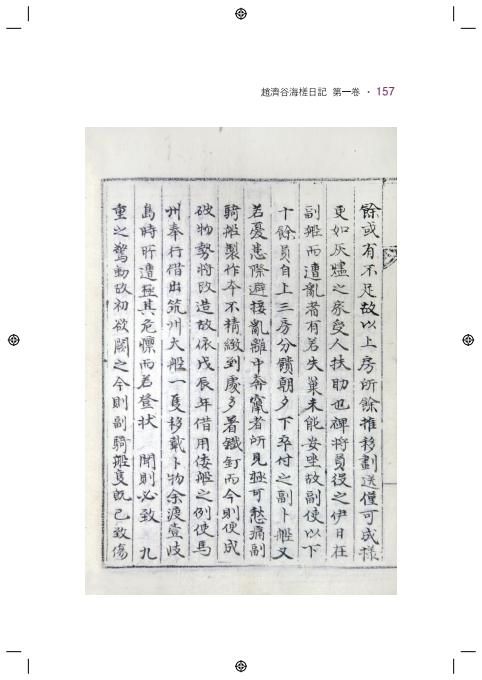 趙濟谷海槎日記 第一卷 · 157
餘或有不足故以上房所餘推移劃送僅可成樣
更如灰燼之家受人扶助也裨將員役之伊日在
副船而遭亂者有若失巢未能安坐故副使以下
十餘員自上三房分饋朝夕下卒付之副卜船又
若憂患際避接亂離中奔竄者所見極可愁痛副
騎船製作本不精緻到處多署鐵釘而今則便成
破物勢將改造故依戊辰年借用倭船之例使馬
州奉行借出筑州大船一隻移載卜物余渡壹岐
島時所遭極其危懍而若登狀 聞則必致 九
重之驚動故初欲闕之今則副騎船隻旣已致傷